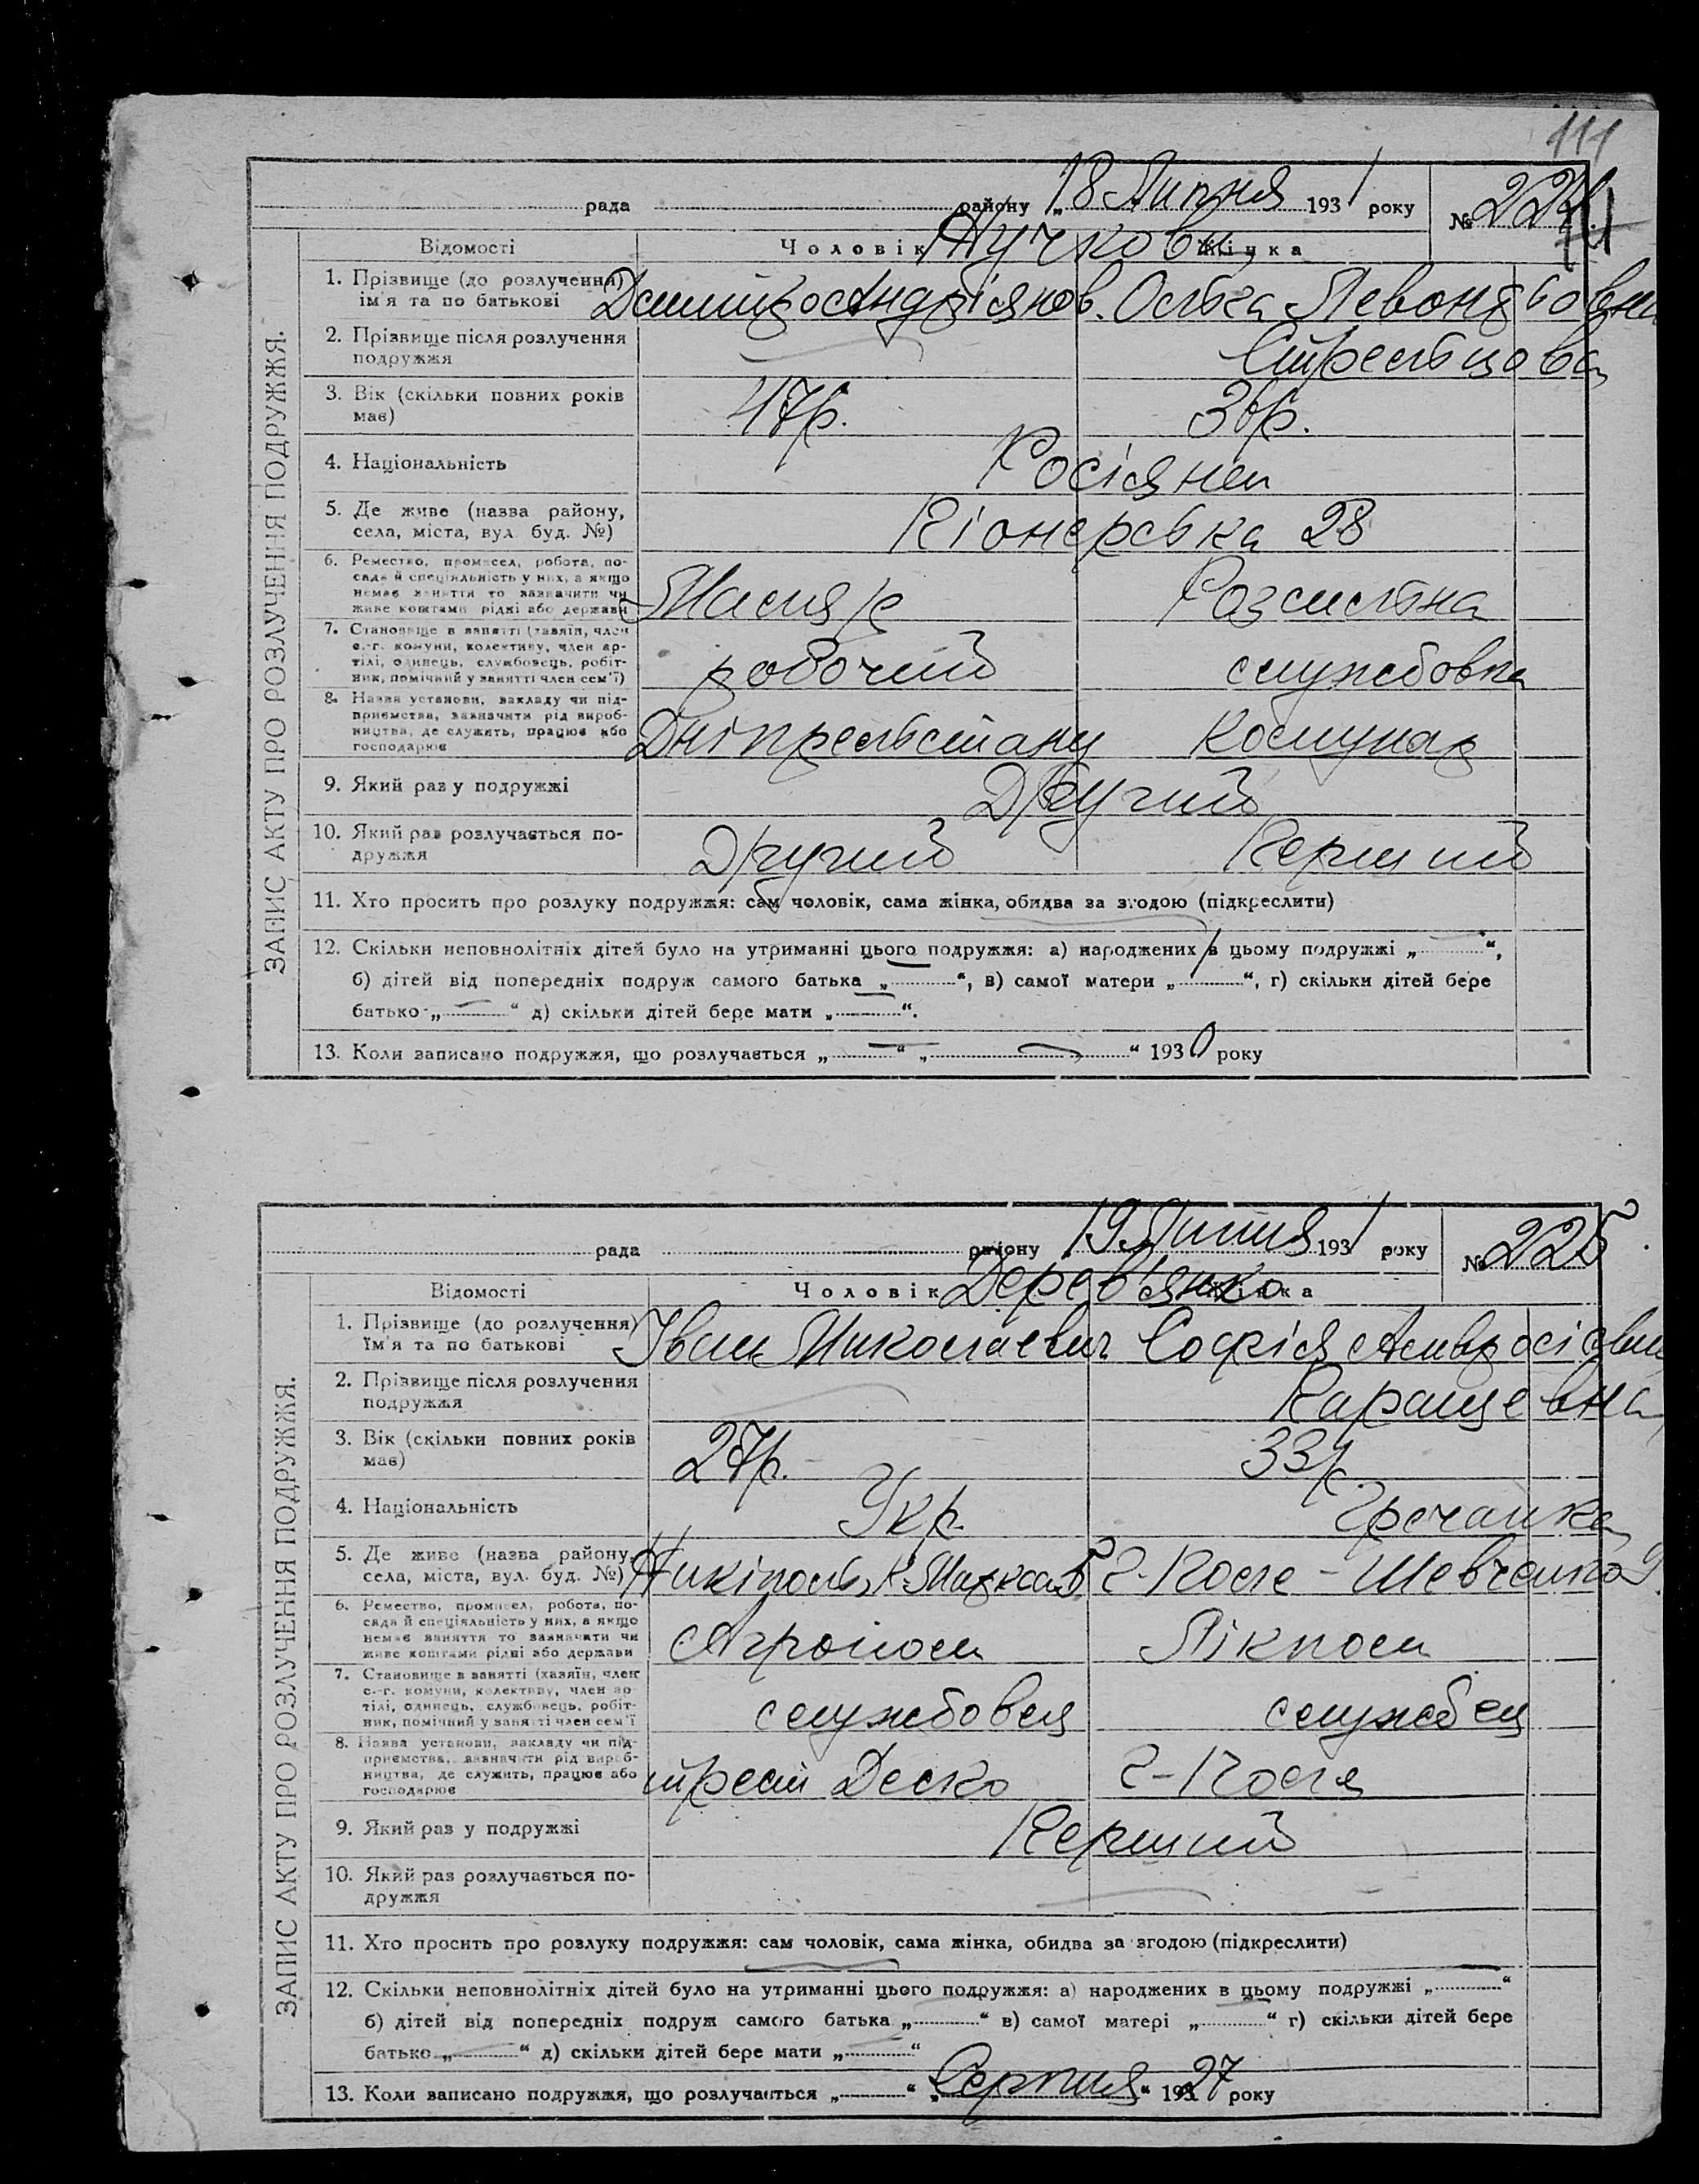 111
рада району „18 Липня 1931 року № 224
Відомості Чоловік Жінка
Пучкови
1. Прізвище (до розлучення) ім'я та по батькові Дмитро Андріянов. Ольга Левондьовна
2. Прізвище після розлучення подружжя — Стрельцова
3. Вік (скільки повних років має) 47р. 36р.
4. Національність Росіяне
5. Де живе (назва району, села, міста, вул. буд. №) Піонерська 28
6. Ремество, промисел, робота, посада й спеціяльність у них, а якщо немає заняття то зазначити чи живе коштами рідні або держави Маляр Розсильна
7. Становище в занятті (хазяїн, член с.-г. комуни, колективу, член артілі, одинець, службовець, робітник, помічний у занятті член сем'ї) робочий службовка
8. Назва установи, закладу чи підприємства, зазначити рід виробництва, де служить, працює або господарює Дніпрельстану Комунар
9. Який раз у подружжі Другий
10. Який раз розлучається подружжя Другий Перший
11. Хто просить про розлуку подружжя: сам чоловік, сама жінка, обидва за згодою (підкреслити)
12. Скільки неповнолітніх дітей було на утриманні цього подружжя: а) народжених в цьому подружжі „—“,
б) дітей від попередніх подруж самого батька „—“, в) самої матери „—“, г) скільки дітей бере
батько „—“ д) скільки дітей бере мати „—“.
13. Коли записано подружжя, що розлучається „—“ „—“ 1930 року
ЗАПИС АКТУ ПРО РОЗЛУЧЕННЯ ПОДРУЖЖЯ.
рада району 19 Липня 1931 року № 225
Відомості Чоловік Жінка
Дерев'янко
1. Прізвище (до розлучення) ім'я та по батькові Іван Миколаевич Софія Амвросіевн
2. Прізвище після розлучення подружжя — Карацевна
3. Вік (скільки повних років має) 27р. 33р
4. Національність Укр. Гречанка
5. Де живе (назва району, села, міста, вул. буд. №) Нікіполь, К. Маркса 5 Г-Поле - Шевченко 9.
6. Ремество, промисел, робота, посада й спеціяльність у них, а якщо немає заняття то зазначити чи живе коштами рідні або держави Агроном Лікпом
7. Становище в занятті (хазяїн, член с.-г. комуни, колективу, член артілі, одинець, службовець, робітник, помічний у занятті член сем'ї службовец службец
8. Назва установи, закладу чи підприємства, зазначити рід виробництва, де служить, працює або господарює трест Г-Поля
9. Який раз у подружжі Перший
10. Який раз розлучається подружжя —
11. Хто просить про розлуку подружжя: сам чоловік, сама жінка, обидва за згодою (підкреслити)
12. Скільки неповнолітніх дітей було на утриманні цього подружжя: а) народжених в цьому подружжі „—“
б) дітей від попередніх подруж самого батька „—“ в) самої матері „—“ г) скільки дітей бере
батько „—“ д) скільки дітей бере мати „—“
13. Коли записано подружжя, що розлучається „—“ „Серпня“ 1927 року
ЗАПИС АКТУ ПРО РОЗЛУЧЕННЯ ПОДРУЖЖЯ.